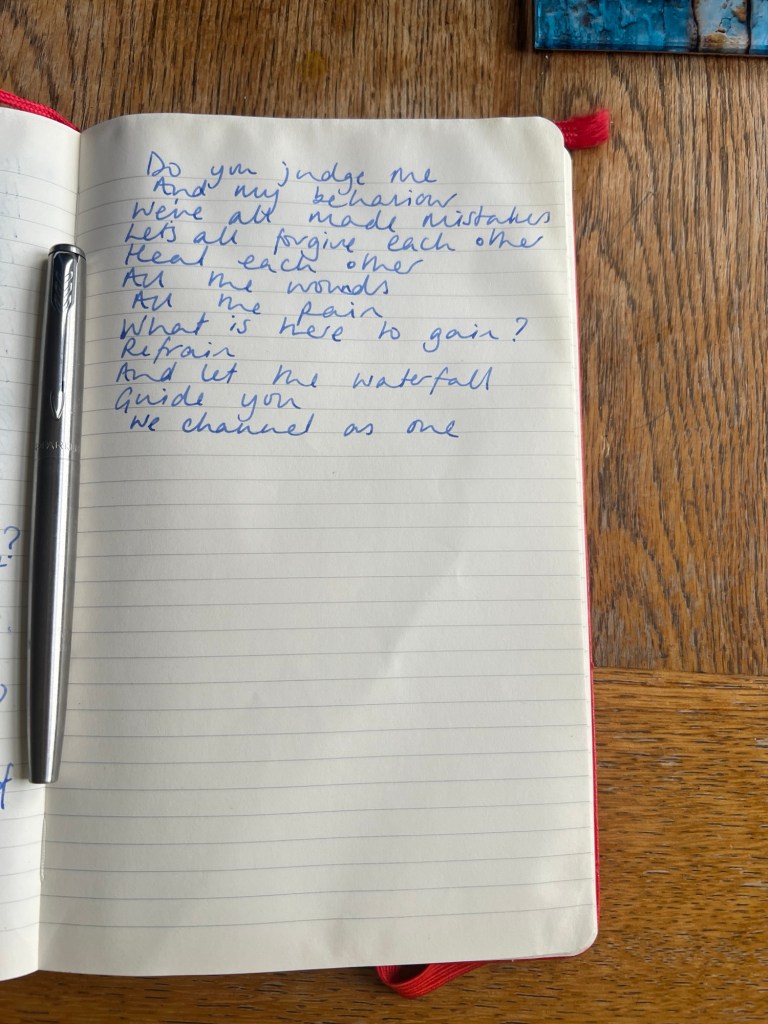 Do you judge me
And my behaviour
We've all made mistakes
Lets all forgive each other
Heal each other
All the wounds
All the pain
What is here to gain?
Refrain
And let the waterfall
Guide you
We channel as one
?
f
PARKER